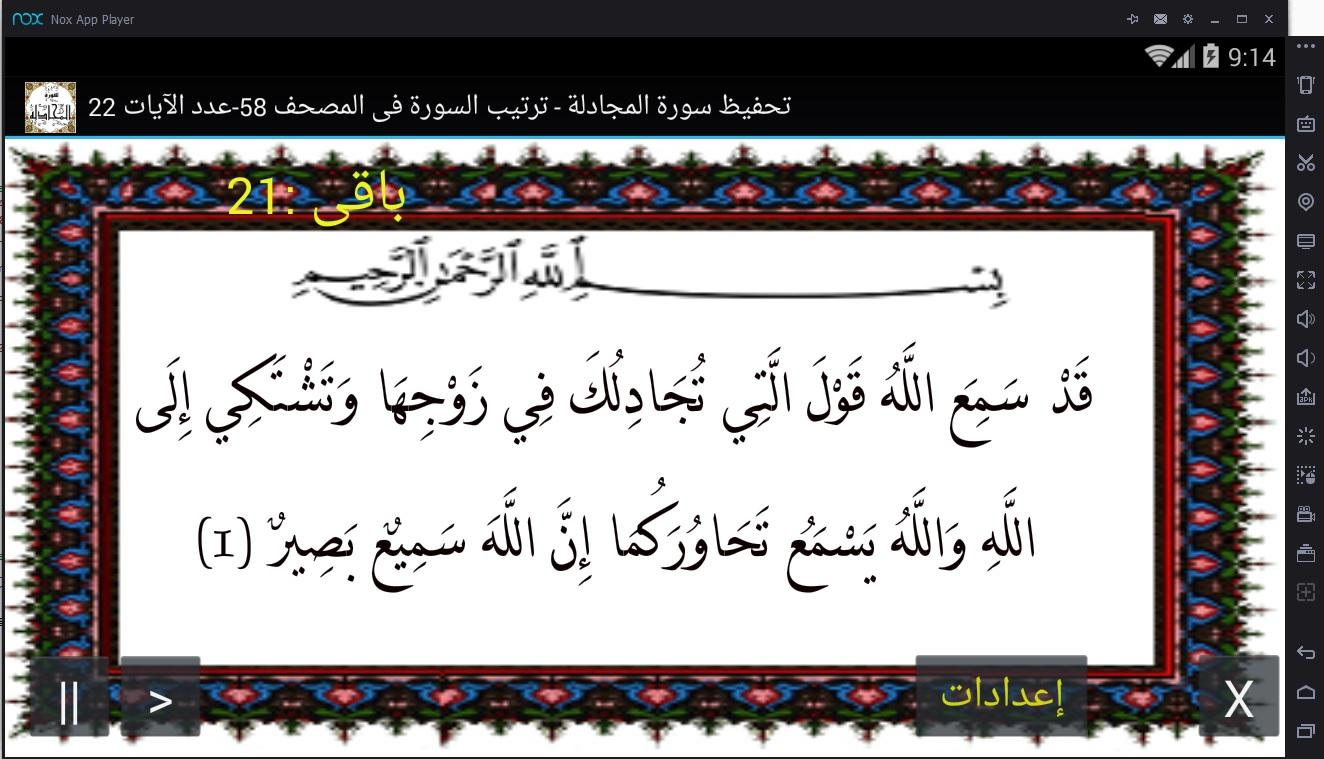 nox Nox App Player
9:14
تحفيظ سورة المجادلة - ترتيب السورة فى المصحف 58-عدد الآيات 22
باقى :21
بِسْمِ ٱللَّهِ ٱلرَّحْمَٰنِ ٱلرَّحِيمِ
قَدْ سَمِعَ اللَّهُ قَوْلَ الَّتِي تُجَادِلُكَ فِي زَوْجِهَا وَتَشْتَكِي إِلَى
اللَّهِ وَاللَّهُ يَسْمَعُ تَحَاوُرَكُمَا إِنَّ اللَّهَ سَمِيعٌ بَصِيرٌ (1)
|| > إعدادات X